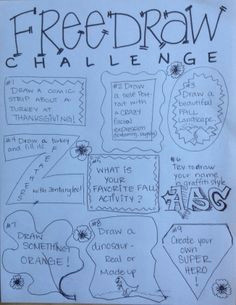 FREEDRAW
CHALLENGE
#1
DRAW A COMIC-
STRIP ABOUT A
TURKEY AT
THANKSGIVING!
#2 DRAW
a self Port-
rait with
a CRAZY
facial
expression
#3
Draw a
beautiful
FALL
Landscape
#4 Draw a turkey
and fill it
FEATHERS
with zentangles!
#5
WHAT IS
YOUR
FAVORITE FALL
ACTIVITY?
#6
Try to draw
your name
graffiti style
#7
DRAW
SOMETHING
ORANGE!
#8
Draw a
dinosaur-
Real or
Made up
#9
Create your
own
SUPER
HERO!